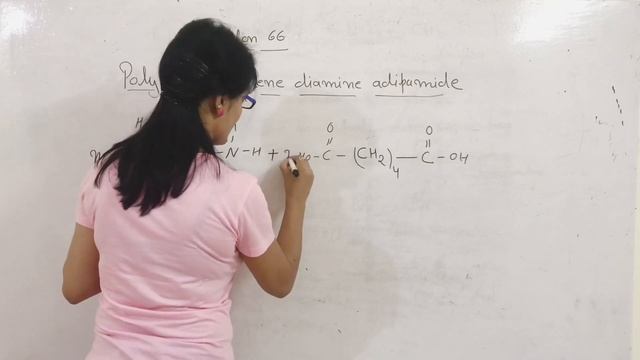 66
Poly ene diamine adipamide
H O O
N - H + HO - C - (CH2)4 - C - OH